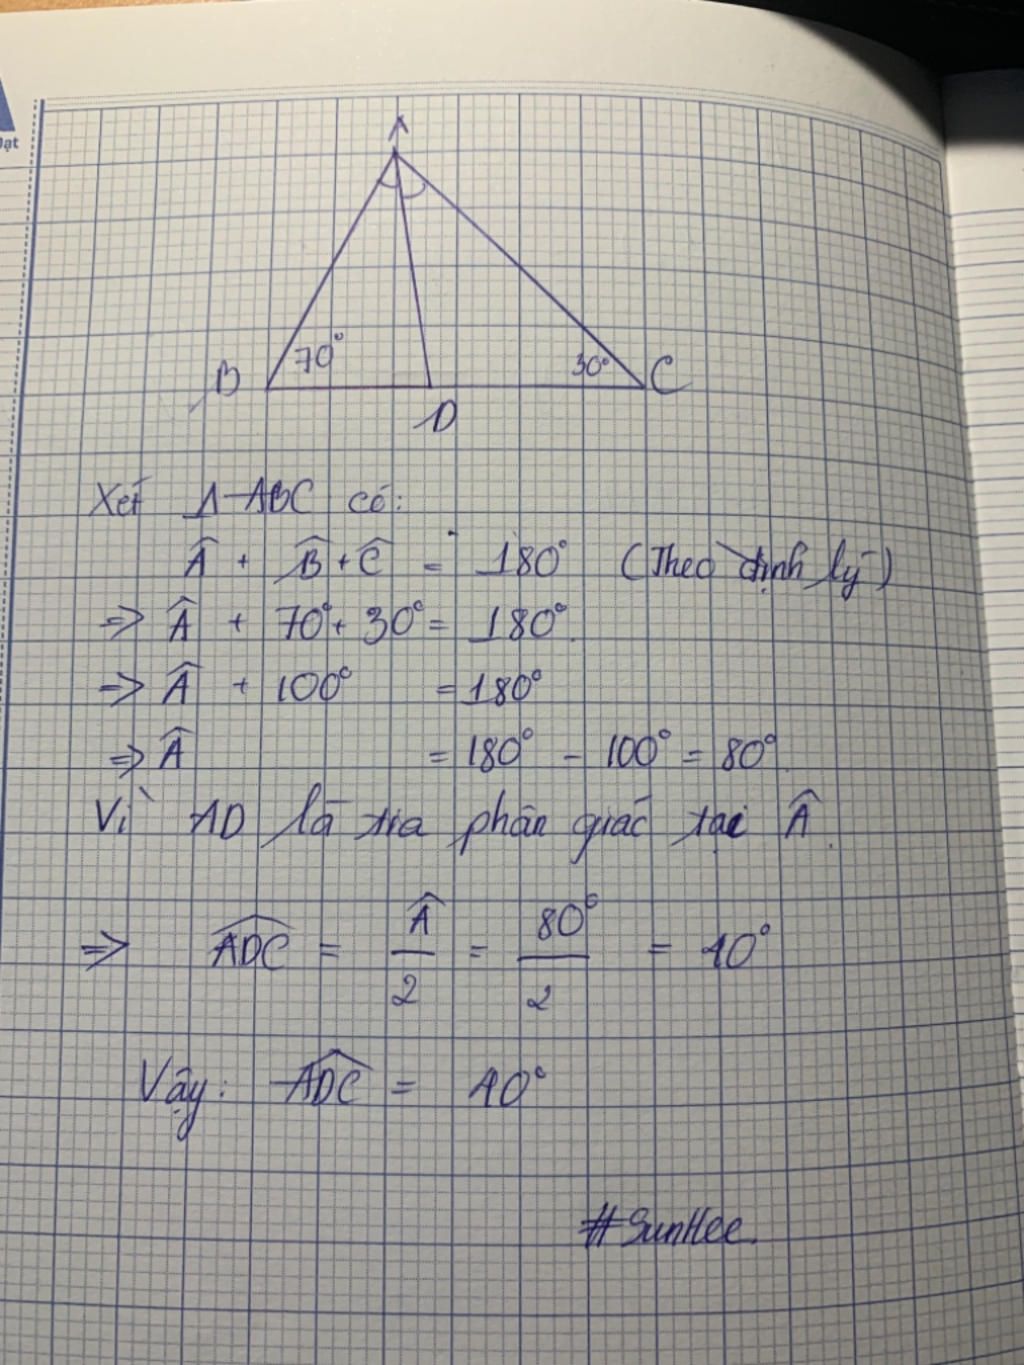 ạt
A
70°
30°
B
C
D
Xét Δ ABC có:
Â + B̂ + Ĉ = 180° (Theo định lý)
=> Â + 70° + 30° = 180°.
=> Â + 100° = 180°
=> Â = 180° - 100° = 80°.
Vì AD là tia phân giác tại Â.
=> \widehat{ADC} = Â/2 = 80°/2 = 40°
Vậy: \widehat{ADC} = 40°
#SunHee.